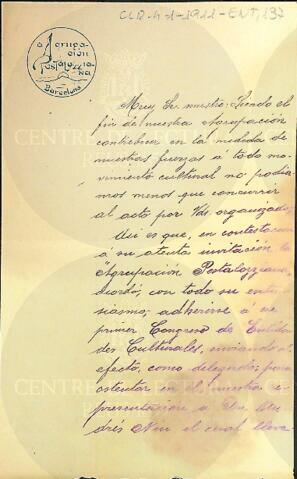 CUR-4-1-1911-ENT, 137
Agrupación
Pestalozziana
Barcelona
Muy Sr. nuestro: Siendo el
fin de nuestra Agrupación
contribuir en la medida de
nuestras fuerzas a todo mo-
vimiento cultural no podía-
mos menos que concurrir
al acto por Vds. organizado.
Así es que, en contestación
á su atenta invitación la
"Agrupación Pestalozziana,
acordó, con todo su entu-
siasmo, adherirse á ese
primer Congreso de Entida-
des Culturales, enviando al
efecto, como delegado, para
ostentar en él nuestra re-
presentación a Dn. An-
drés Nin el cual lleva
CENTRE DE LECTURA
CENTRE DE LECTURA